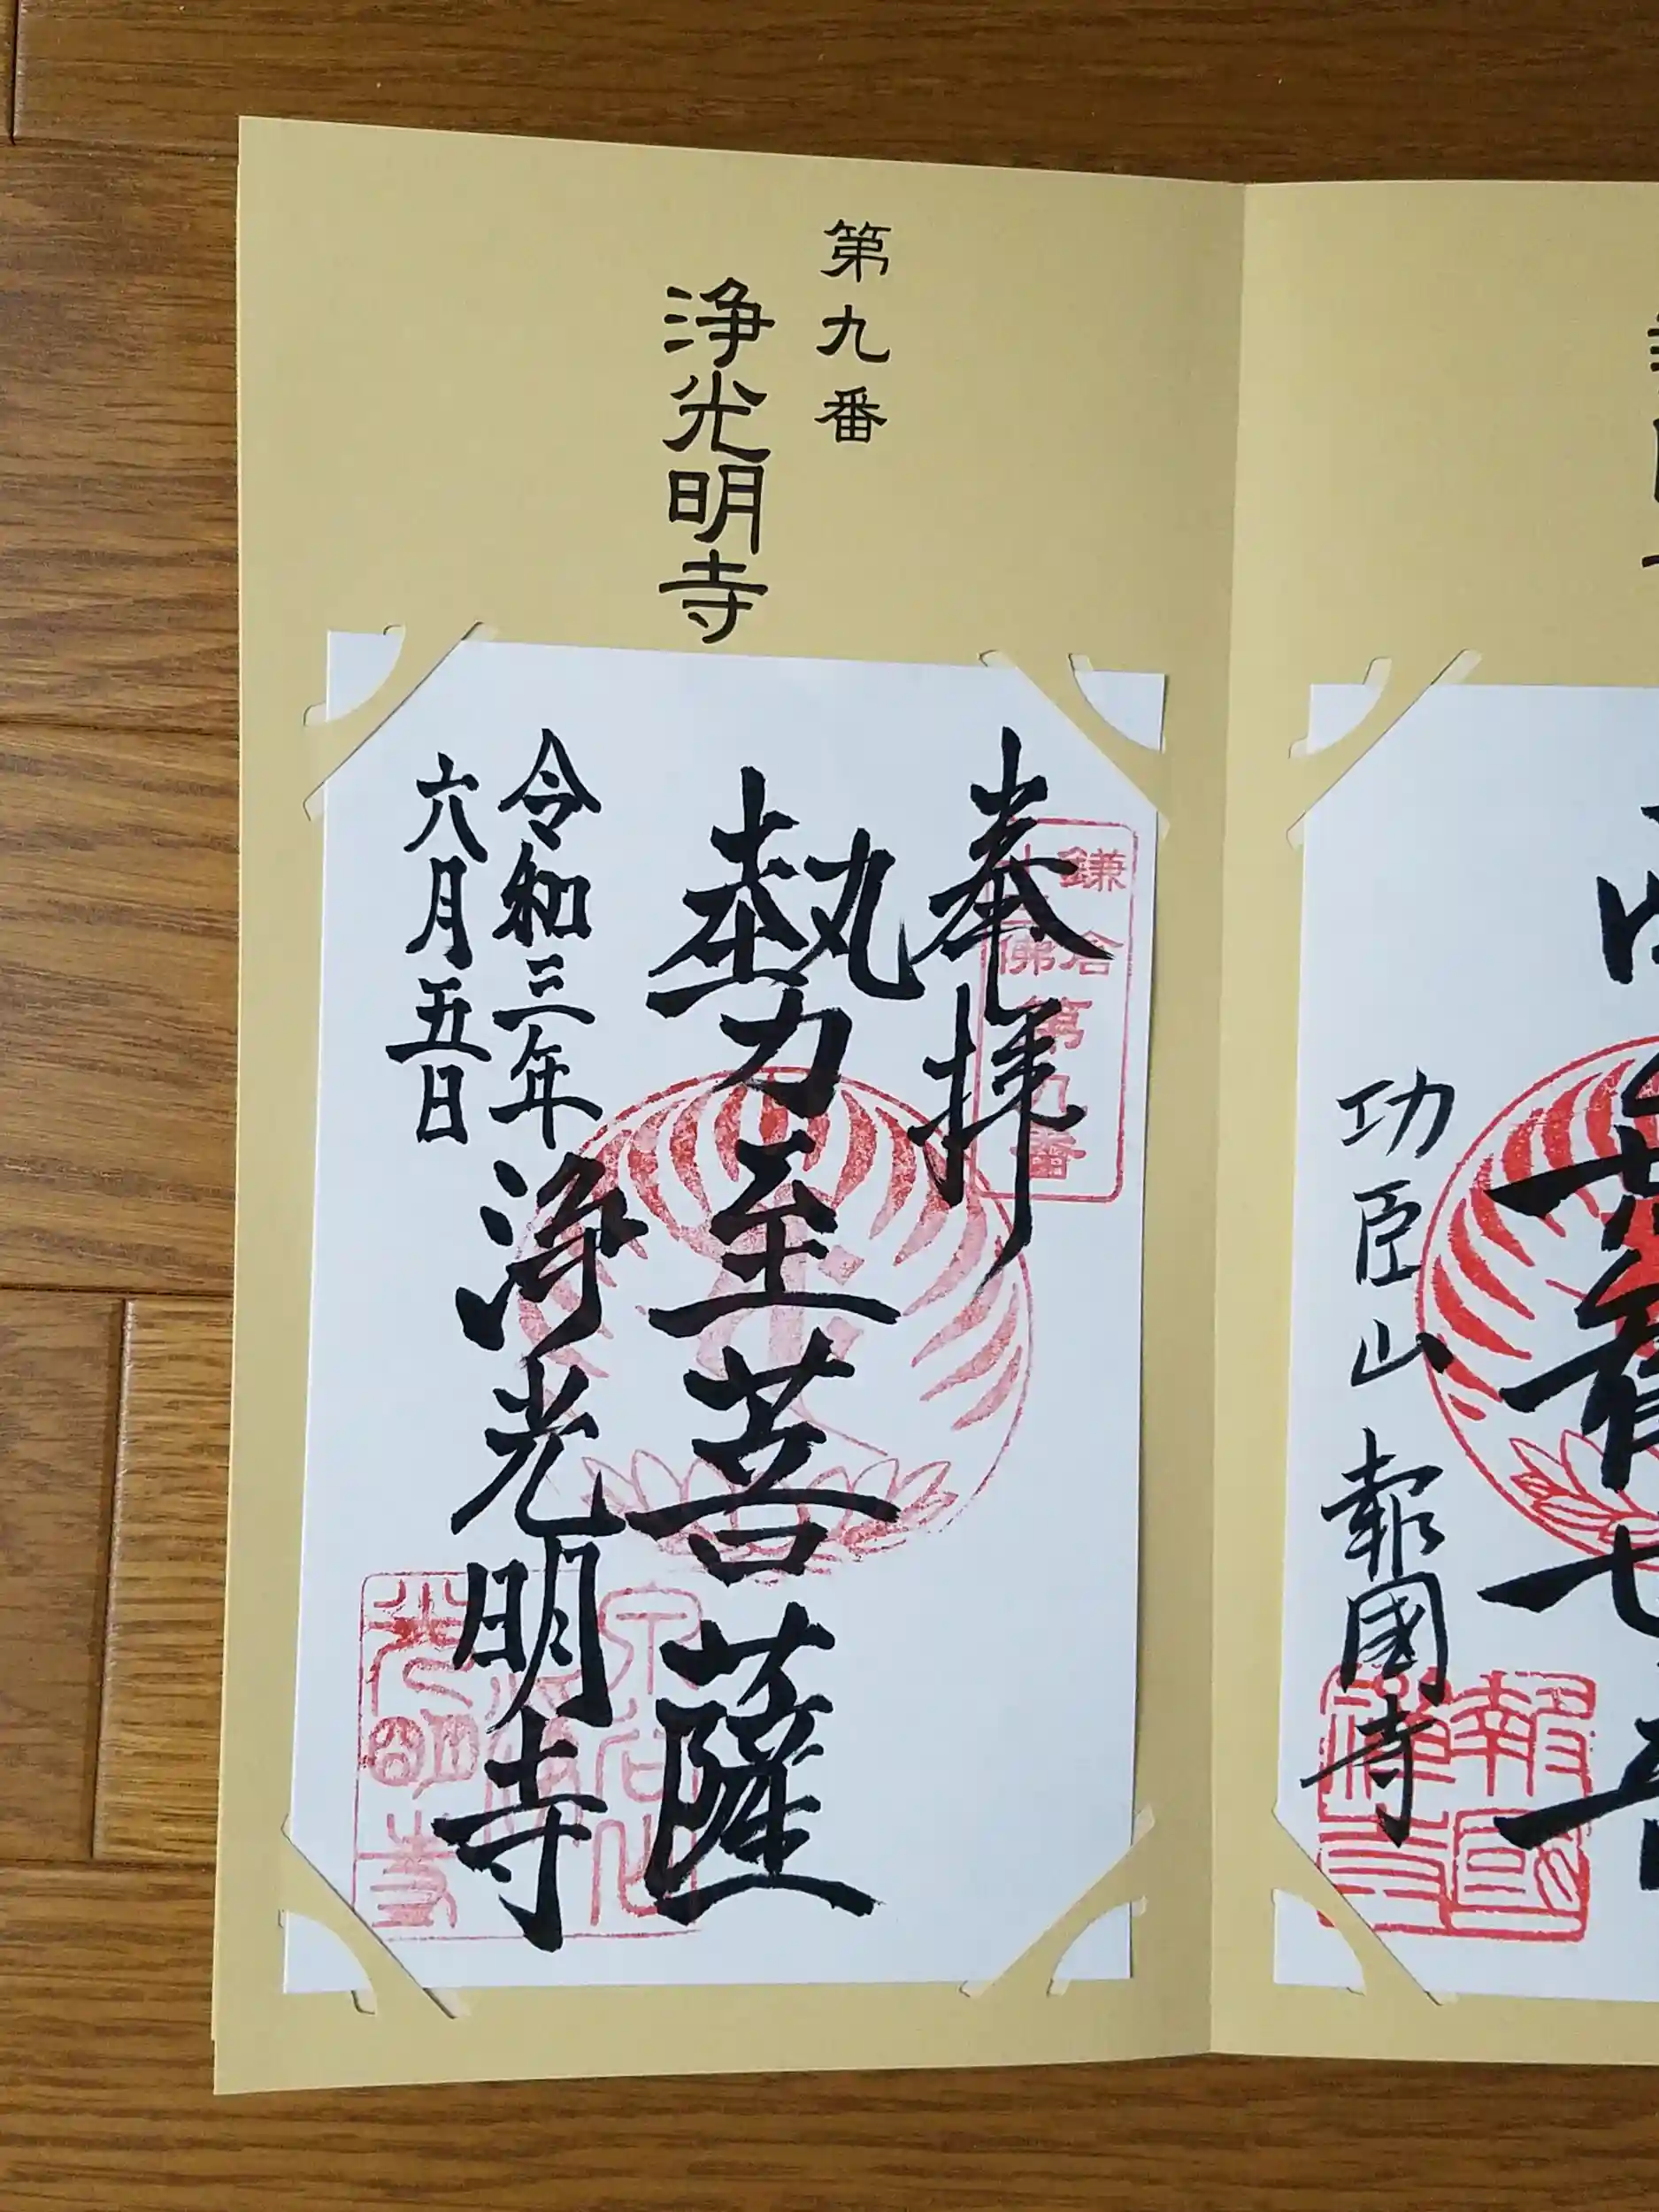 功臣山 報國寺
報國
禅寺
第九番
浄光明寺
奉拝
鎌倉
佛
第九番
勢至菩薩
令和三年
六月五日
浄光明寺
光明寺